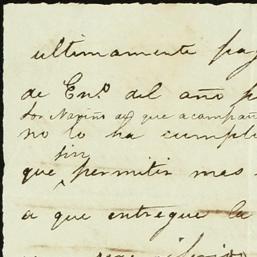 ultimamente pag
de En.º del año p
Nariño que acompañ
no lo ha cumpli
sin
que permitir mas
a que entregue la